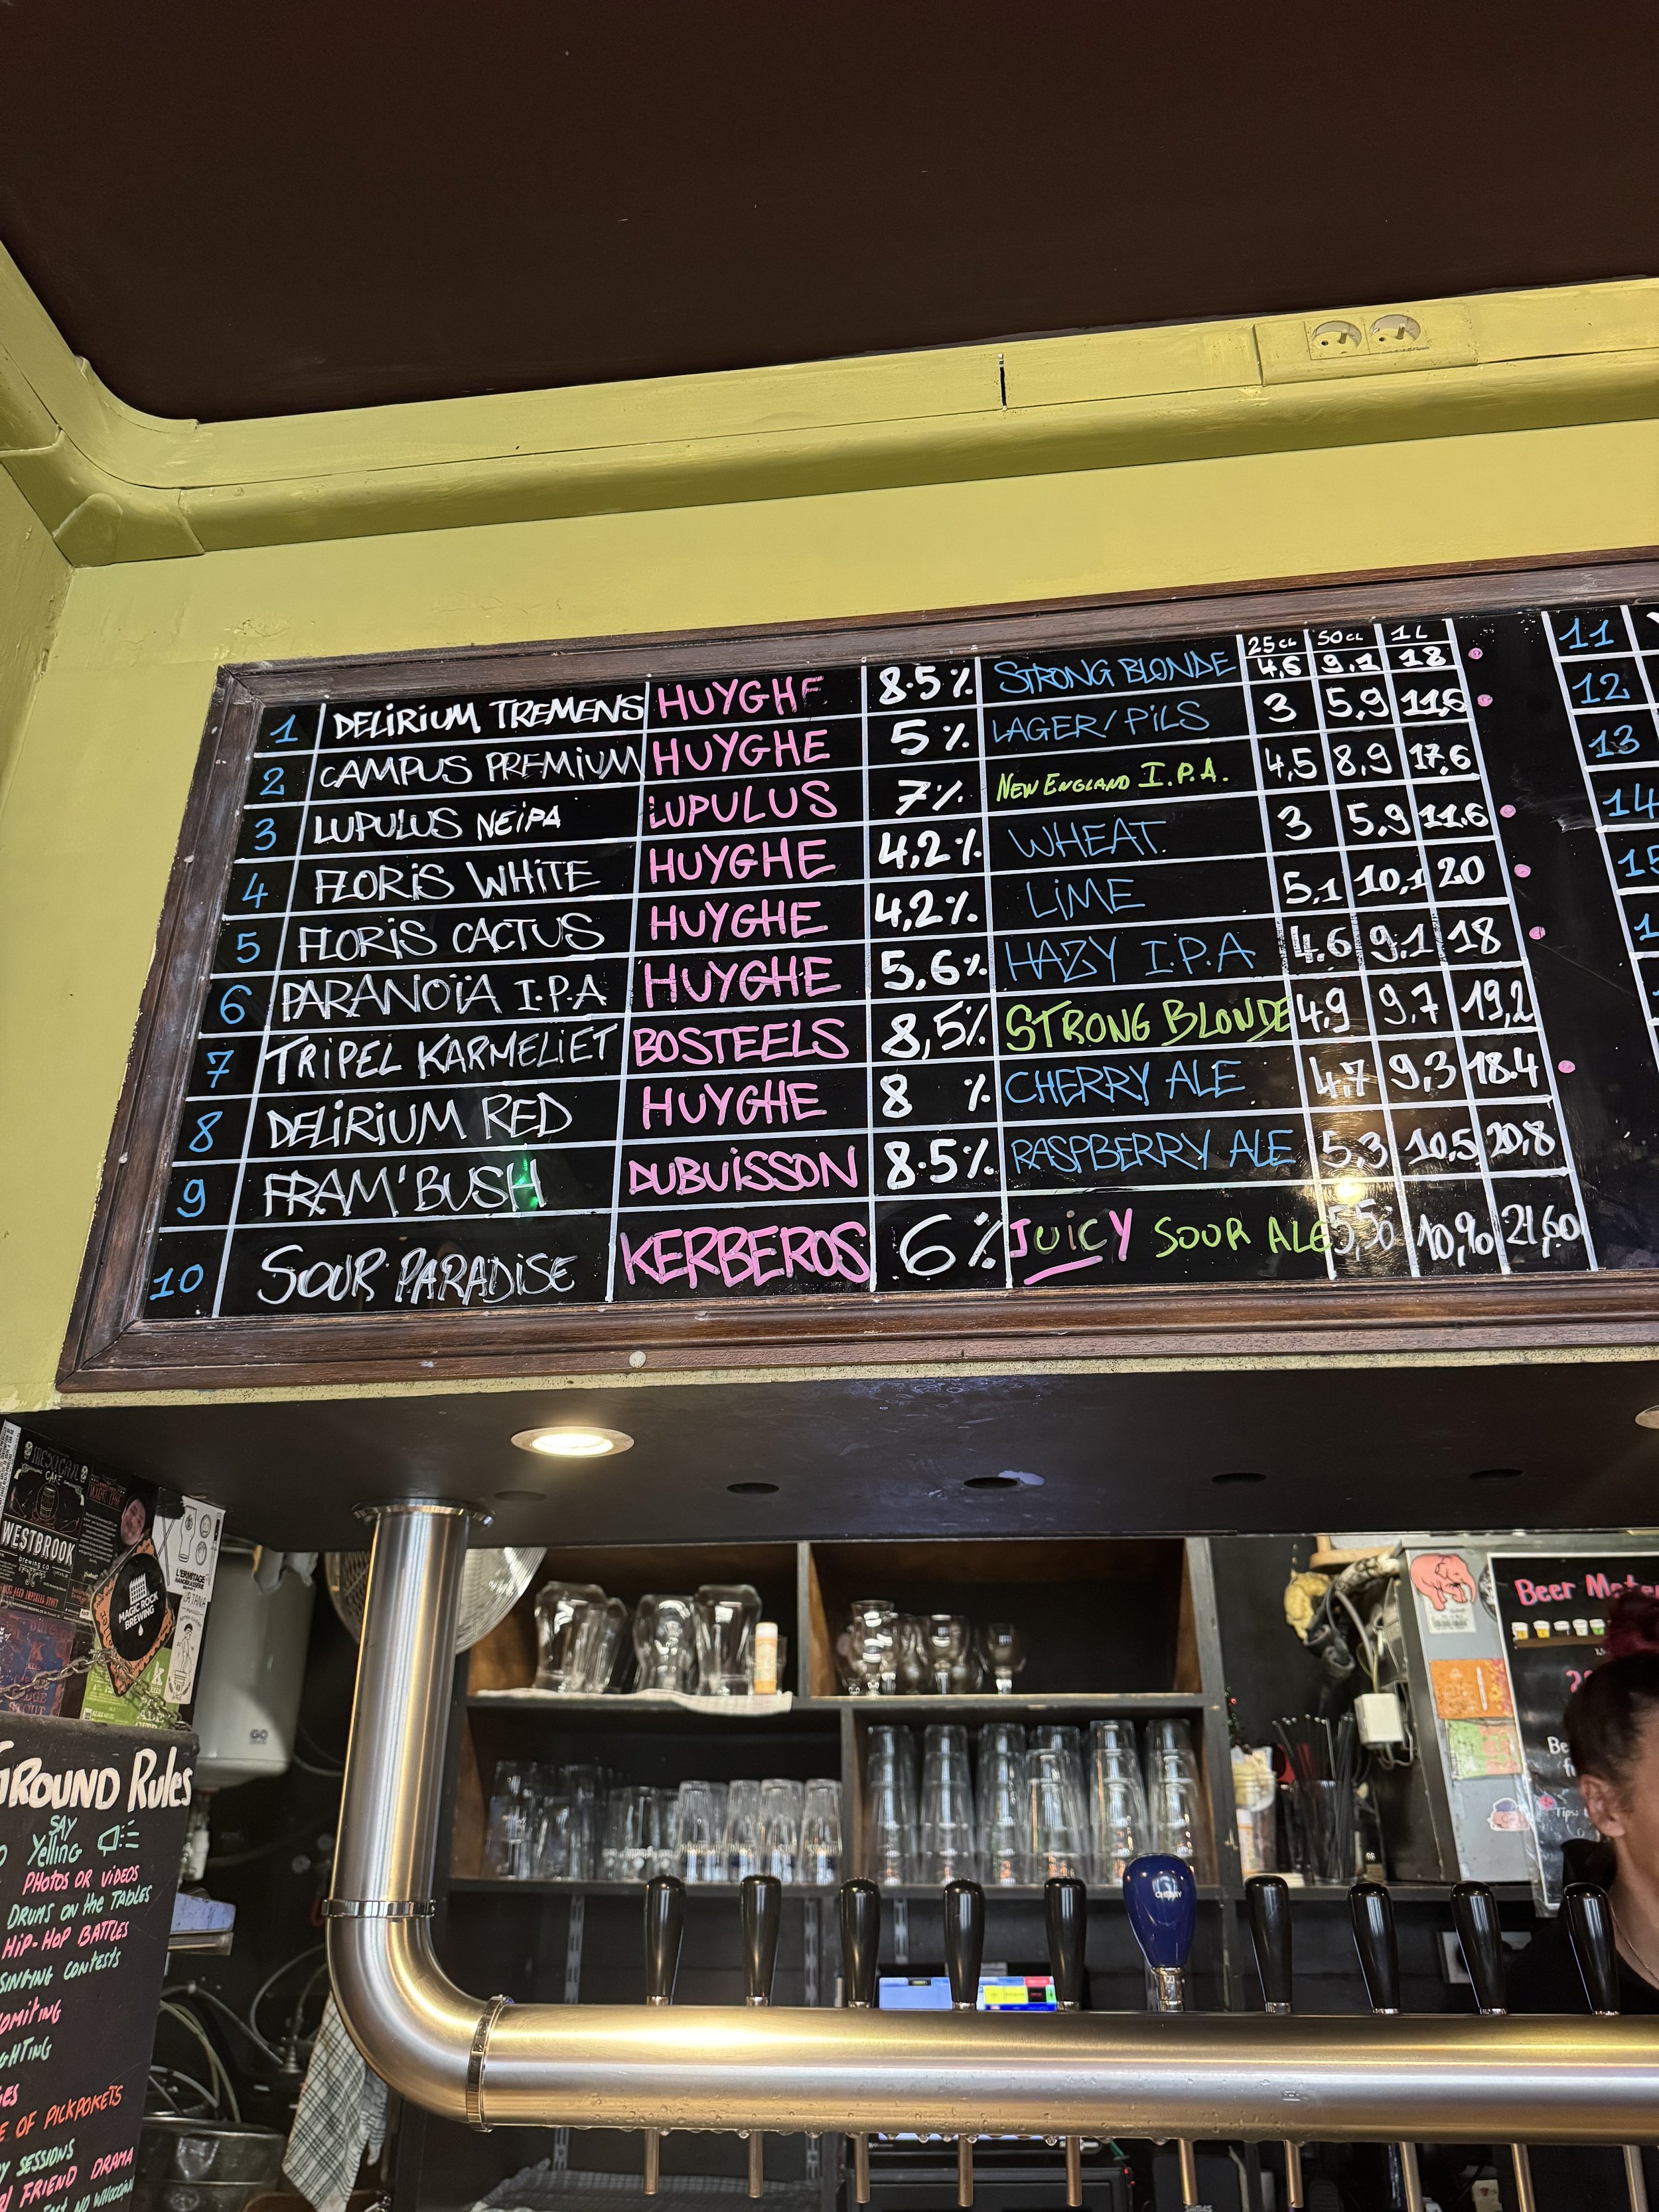 25CL 50CL 1L
1 DELIRIUM TREMENS HUYGHE 8.5% STRONG BLONDE 4,6 9,1 18
2 CAMPUS PREMIUM HUYGHE 5% LAGER/PILS 3 5,9 11,6
3 LUPULUS NEIPA LUPULUS 7% NEW ENGLAND I.P.A. 4,5 8,9 17,6
4 FLORIS WHITE HUYGHE 4,2% WHEAT 3 5,9 11.6
5 FLORIS CACTUS HUYGHE 4,2% LIME 5,1 10,1 20
6 PARANOÏA I.P.A HUYGHE 5,6% HAZY I.P.A 4.6 9,1 18
7 TRIPEL KARMELIET BOSTEELS 8,5% STRONG BLONDE 4,9 9,7 19,2
8 DELIRIUM RED HUYGHE 8 % CHERRY ALE 4,7 9,3 18.4
9 FRAM'BUSH DUBUISSON 8.5% RASPBERRY ALE 5,3 10,5 20,8
10 SOUR PARADISE KERBEROS 6% JUICY SOUR ALE 5,50 10,90 21,60
11
12
13
14
15
MEXICAN
CAKE
WESTBROOK
brewing co
MAGIC ROCK
BREWING
L'ERMITAGE
GROUND Rules
SAY
Yelling
PHOTOS OR VIDEOS
DRUMS ON the TABLES
HIP-HOP BATTLES
SINGING CONTESTS
VOMITING
OF PICKPOKETS
SESSIONS
FRIEND DRAMA
CHERRY
Beer
Be
Tips: